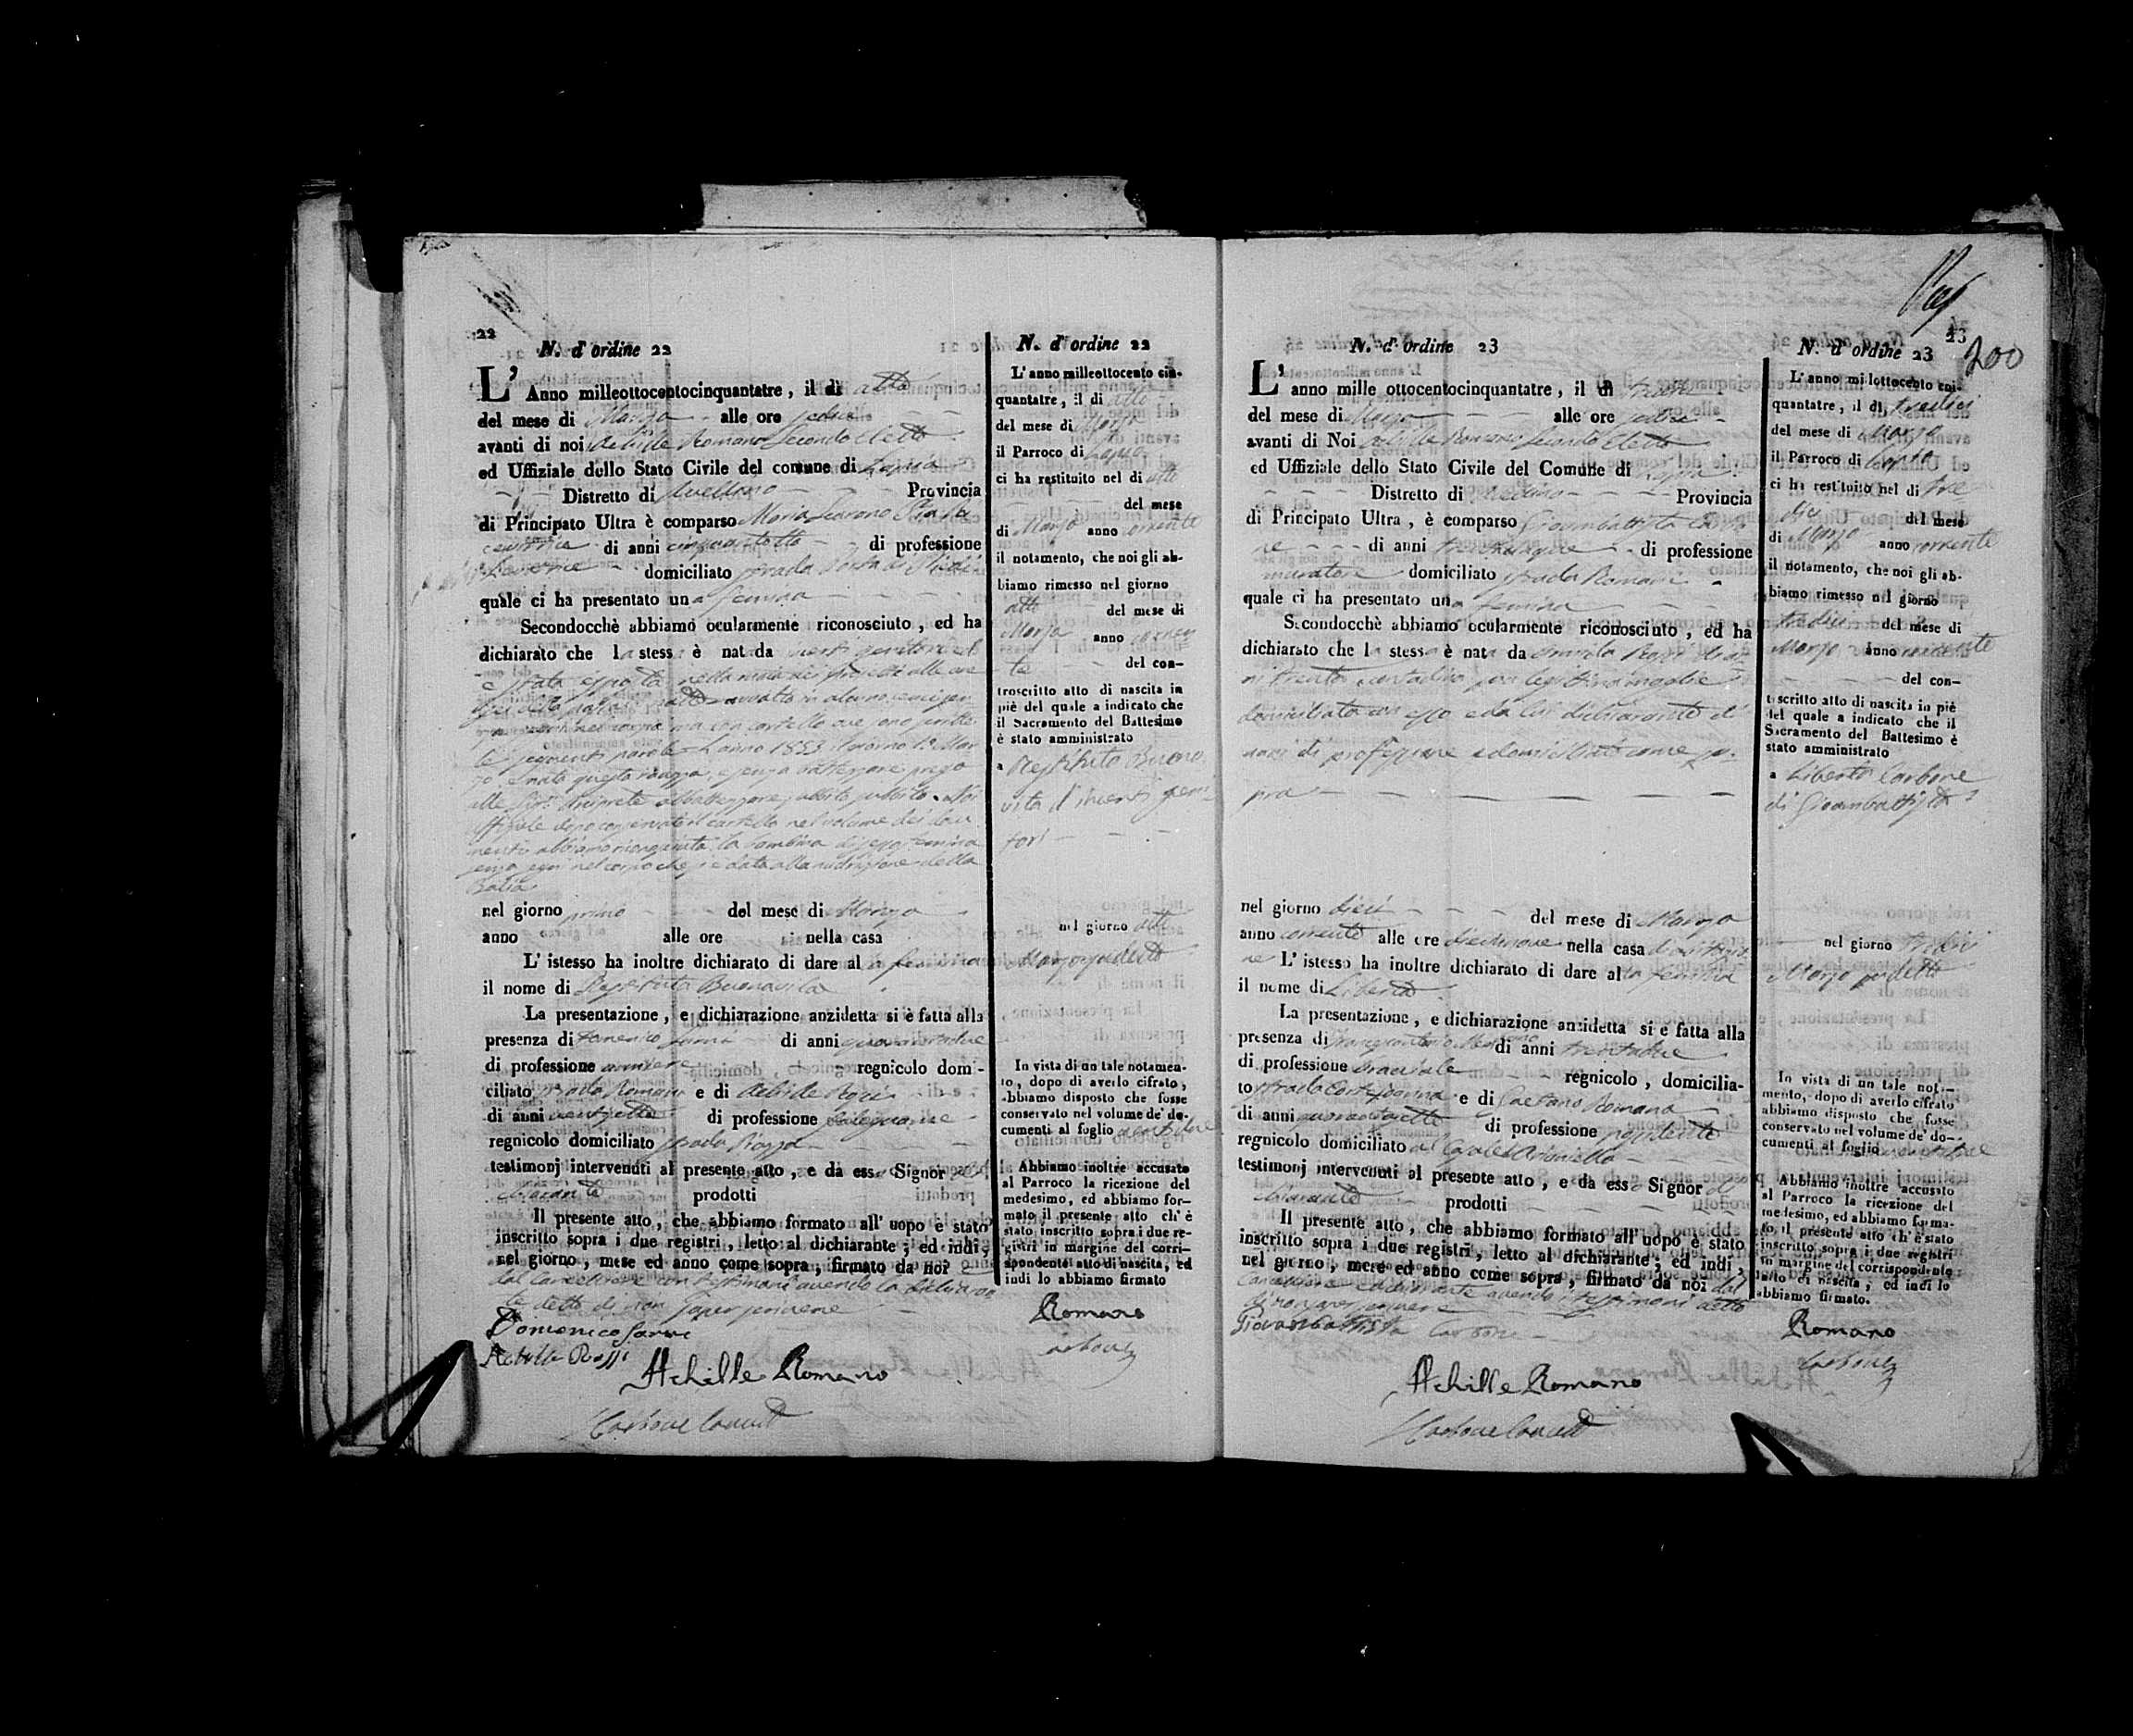 22
N. d' ordine 22
L' Anno milleottocentocinquantatre, il di otto
del mese di Marzo alle ore sedici
avanti di noi Achille Romano Secondo Eletto
ed Uffiziale dello Stato Civile del comune di
Distretto di Avellino Provincia
di Principato Ultra è comparso Maria
di anni cinquantotto di professione
domiciliato strada Porta di
quale ci ha presentato una femina
Secondocchè abbiamo ocularmente riconosciuto, ed ha
dichiarato che la stessa è nata da incerti genitori ed
è stata esposta nella ruota dei projetti alle ore
involta in alcuni cenci sen
za segni nel corpo ma con cartello ove sono scritte
le seguenti parole = L'anno 1853 il giorno 1º Mar
zo è nata questa ragazza, e senza battezzare prego
alle Sigr. Arciprete a battezzare subito subito. Noi
Uffiziale dopo conservato il cartello nel volume dei docu
menti abbiamo riconosciuta la bambina di sesso femina
senza segni nel corpo che si è data alla nudrizione della
Balia
nel giorno primo del mese di Marzo
anno alle ore nella casa
L' istesso ha inoltre dichiarato di dare alla femina
il nome di Restituta Buonavita
La presentazione, e dichiarazione anzidetta si è fatta alla
presenza di Domenico di anni quarantadue
di professione regnicolo domi-
ciliato strada Romani e di Achille Rossi
di anni ventisette di professione falegname
regnicolo domiciliato strada Piazza
testimonj intervenuti al presente atto, e da essa Signor di
chiarante prodotti
Il presente atto, che abbiamo formato all' uopo è stato
inscritto sopra i due registri, letto al dichiarante; ed indi,
nel giorno, mese ed anno come sopra, firmato da noi e
dal Cancelliere con testimoni avendo la dichiaran
te detto di non saper scrivere
Domenico
Achille Rossi
Achille Romano
Carbone Cancell
N. d' ordine 22
L' anno milleottocento cin-
quantatre, il di otto
del mese di Marzo
il Parroco di
ci ha restituito nel di otto
del mese
di Marzo anno corrente
il notamento, che noi gli ab-
biamo rimesso nel giorno
otto del mese di
Marzo anno corren
te del con-
troscritto atto di nascita in
piè del quale a indicato che
il Sacramento del Battesimo
è stato amministrato
a Restituta Buona
vita d'incerti geni
tori
nel giorno otto
Marzo sudetto
In vista di un tale notamen-
to, dopo di averlo cifrato,
abbiamo disposto che fosse
conservato nel volume de' do-
cumenti al foglio ventidue
Abbiamo inoltre accusato
al Parroco la ricezione del
medesimo, ed abbiamo for-
mato il presente atto ch' è
stato inscritto sopra i due re-
gistri in margine del corri-
spondente atto di nascita, ed
indi lo abbiamo firmato
Romano
Carbone
23
200
N. d' ordine 23
L' anno mille ottocentocinquantatre, il di tredici
del mese di Marzo alle ore sedici
avanti di Noi Achille Romano Secondo Eletto
ed Uffiziale dello Stato Civile del Comune di
Distretto di Avellino Provincia
di Principato Ultra, è comparso Giovambattista Carbo
ne di anni trentacinque di professione
muratore domiciliato strada Romani
quale ci ha presentato una femina
Secondocchè abbiamo ocularmente riconosciuto, ed ha
dichiarato che la stessa è nata da Rossi di an
ni trenta contadina sua legittima moglie
domiciliata con esso e da lui dichiarante d'
anni di professione e domicilio come so
pra
nel giorno dieci del mese di Marzo
anno corrente alle ore diecinnove nella casa di
ne L' istesso ha inoltre dichiarato di dare alla femina
il nome di Liberta
La presentazione, e dichiarazione anzidetta si è fatta alla
presenza di di anni trentadue
di professione bracciale regnicolo, domicilia-
to strada e di Gaetano Romano
di anni quarantasette di professione possidente
regnicolo domiciliato al Casale
testimonj intervenuti al presente atto, e da esso Signor di
chiarante prodotti
Il presente atto, che abbiamo formato all' uopo è stato
inscritto sopra i due registri, letto al dichiarante; ed indi,
nel giorno, mese ed anno come sopra, firmato da noi dal
Cancelliere e dichiarante avendo i testimoni detto
di non saper scrivere
Giovambattista Carbone
Achille Romano
Carbone Cancell
N. d' ordine 23
L' anno millottocento cin-
quantatre, il di tredici
del mese di Marzo
il Parroco di
ci ha restituito nel di tre
dici del mese
di Marzo anno corrente
il notamento, che noi gli ab-
biamo rimesso nel giorno
tredici del mese di
Marzo anno corrente
del con-
troscritto atto di nascita in piè
del quale a indicato che il
Sacramento del Battesimo è
stato amministrato
a Liberta Carbone
di Giovambattista
nel giorno tredici
Marzo sudetto
In vista di un tale nota-
mento, dopo di averlo cifrato
abbiamo disposto che fosse
conservato nel volume de' do-
cumenti al foglio ventitre
Abbiamo inoltre accusato
al Parroco la ricezione del
medesimo, ed abbiamo forma-
to, il presente atto ch' è stato
inscritto sopra i due registri
in margine del corrispondente
atto di nascita, ed indi lo
abbiamo firmato.
Romano
Carbone